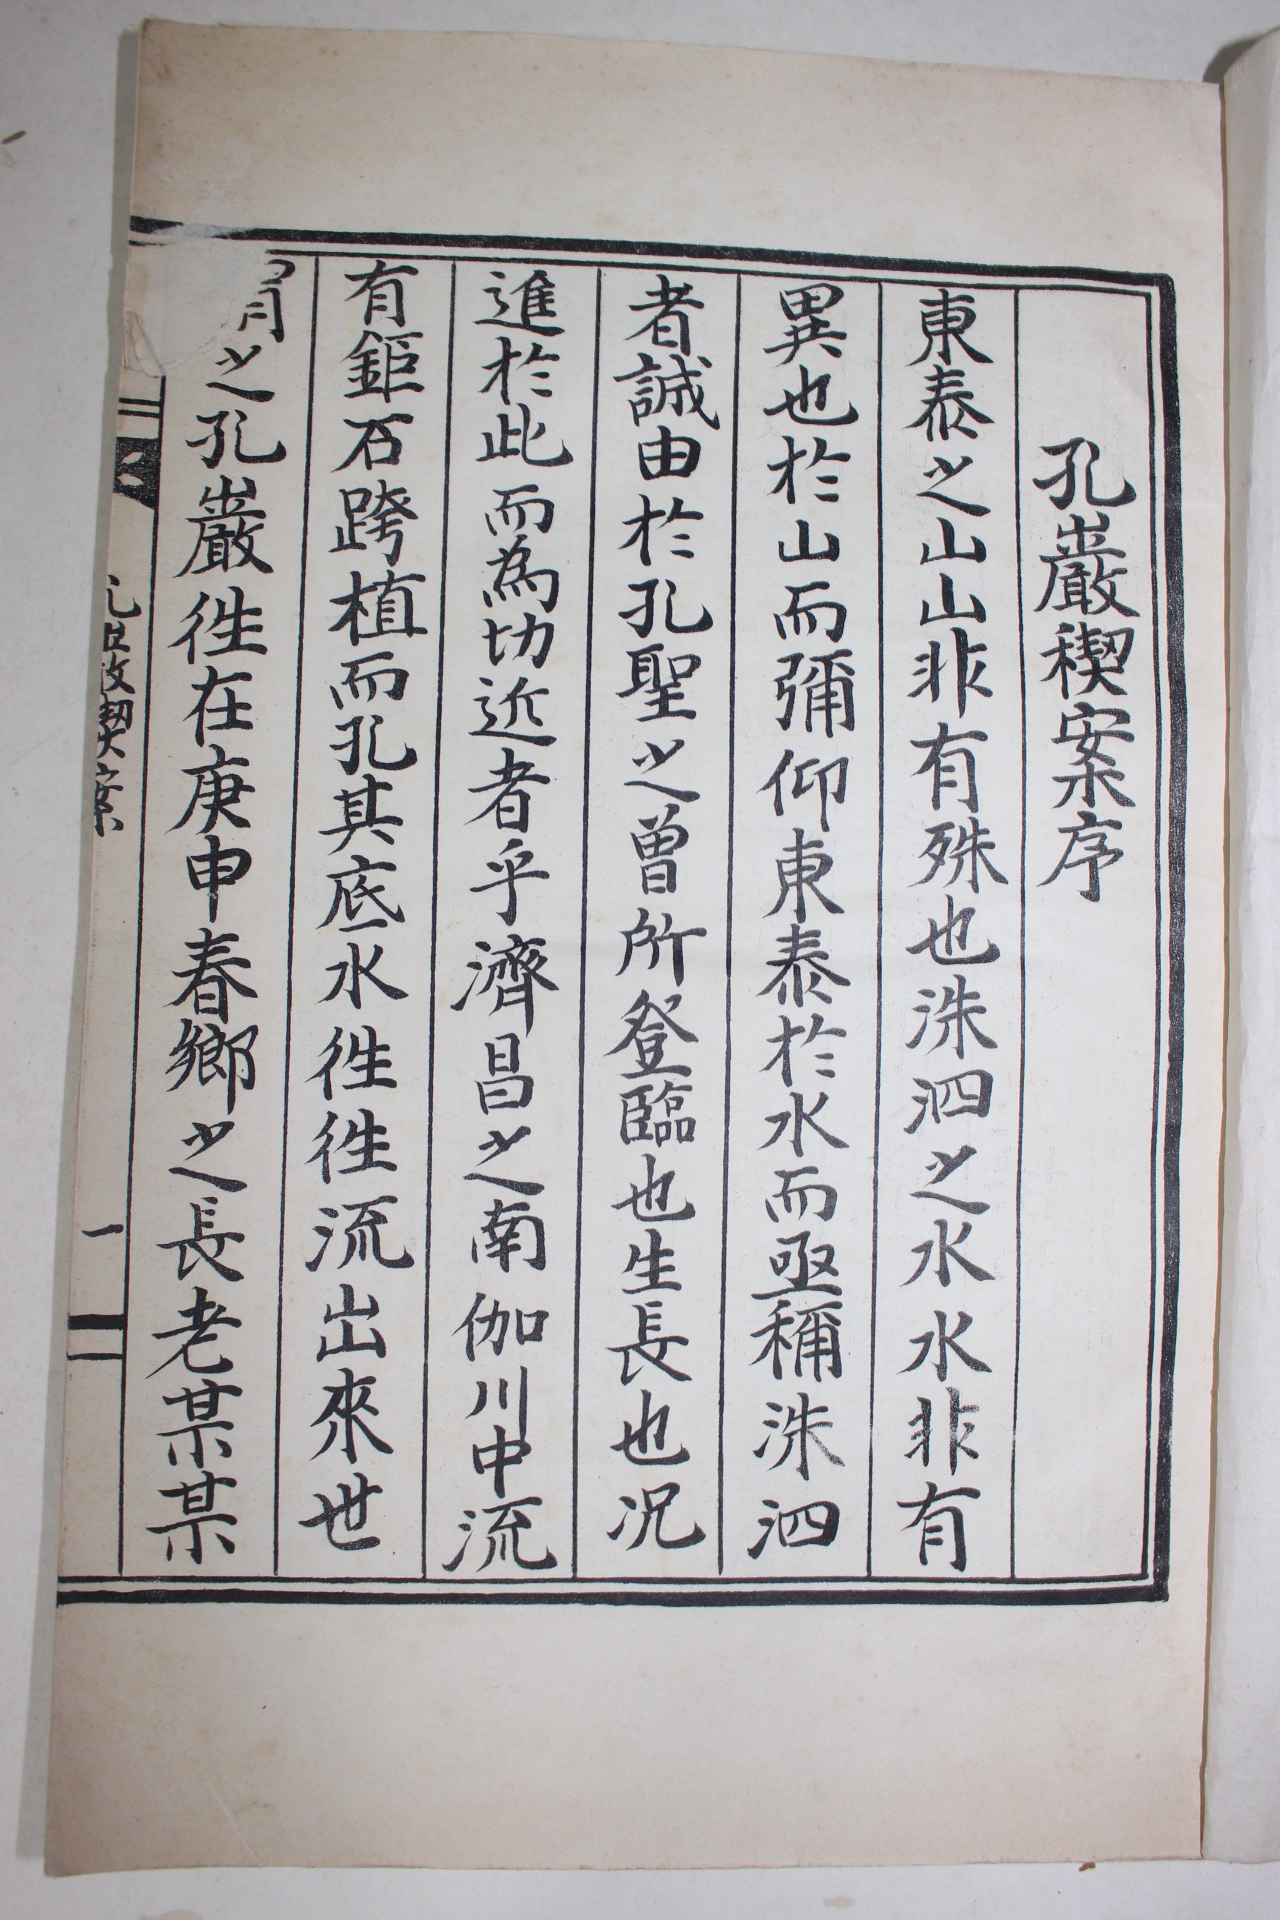 孔巖稧案序
東泰之山山非有殊也洙泗之水水非有
異也於山而彌仰東泰於水而亟稱洙泗
者誠由於孔聖之曾所登臨也生長也况
進於此而為切近者乎濟昌之南伽川中流
有鉅石跨植而孔其底水徃徃流出來世
之孔巖徃在庚申春鄉之長老某某
孔巖稧案
一